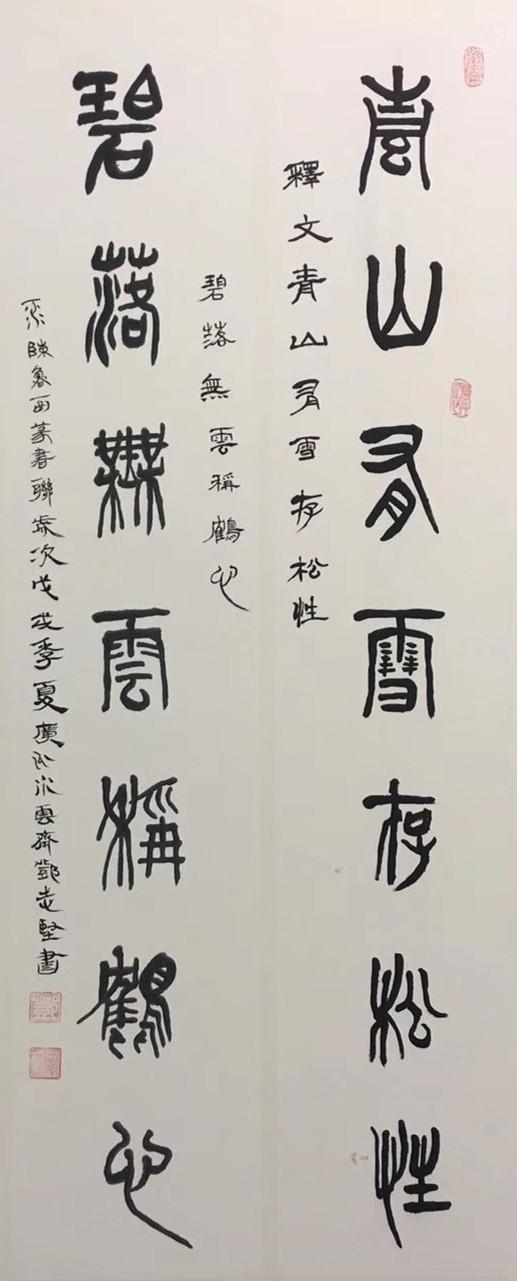 青山有雪存松性
釋文青山有雪存松性
碧落無雲稱鶴心
碧落無雲稱鶴心
陳 篆書聯歲次戊戌季夏廣州水雲齋鄧志堅書